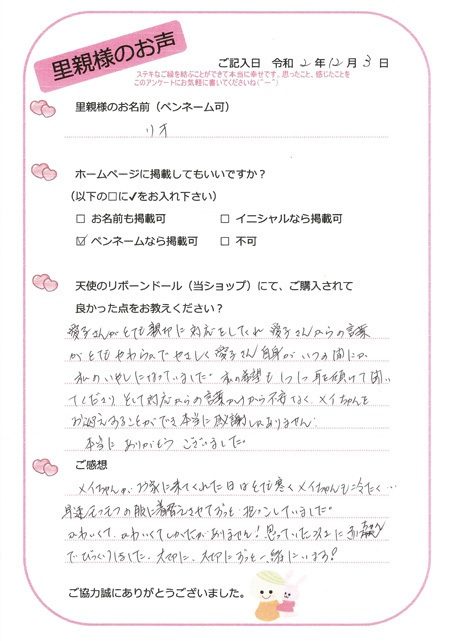 里親様のお声
ご記入日 令和 2 年 12 月 3 日
ステキなご縁を結ぶことができて本当に幸せです。思ったこと、感じたことを
このアンケートにお気軽に書いてくださいね(^ー^)
里親様のお名前(ペンネーム可)
リオ
ホームページに掲載してもいいですか?
(以下の□に✓をお入れ下さい)
□ お名前も掲載可 □ イニシャルなら掲載可
☑ ペンネームなら掲載可 □ 不可
天使のリボーンドール(当ショップ)にて、ご購入されて
良かった点をお教えください?
愛子さんがとても親切に対応をしてくれ 愛子さんからの言葉
がとてもやわらかで やさしく 愛子さん自身が いつの間にか
私のいやしになっていました。私の希望も 1つ1つ耳を傾けて聞い
てくださり そして対応からの言葉かけから不安なく、メイちゃんを
お迎えすることができ 本当に感謝しかありません。
本当に ありがとう ございました。
ご感想
メイちゃんが お家に来てくれた日は とても寒く メイちゃんも冷たく…
早速モフモフの服に着替えさせてずっと 抱っこしていました。
かわいくて、かわいくてしかたがありません! 思っていた以上に 赤ちゃん
でびっくりしました。大切に、大切に ずっと一緒にいます!
ご協力誠にありがとうございました。